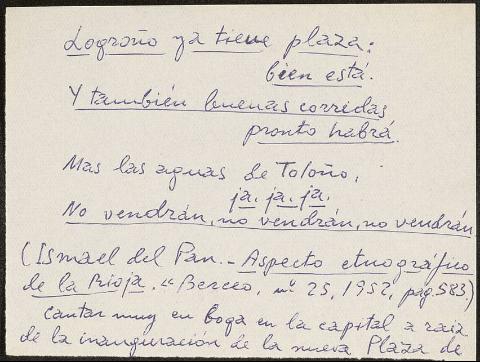 Logroño ya tiene plaza:
bien está.
Y también buenas corridas
pronto habrá.
Mas las aguas de Toloño,
ja, ja, ja,
No vendrán, no vendrán, no vendrán
(Ismael del Pan.- Aspecto etnográfico
de la Rioja. "Berceo, nº 25, 1952, pag. 583.)
Cantar muy en boga en la capital a raiz
de la inauguración de la nueva Plaza de